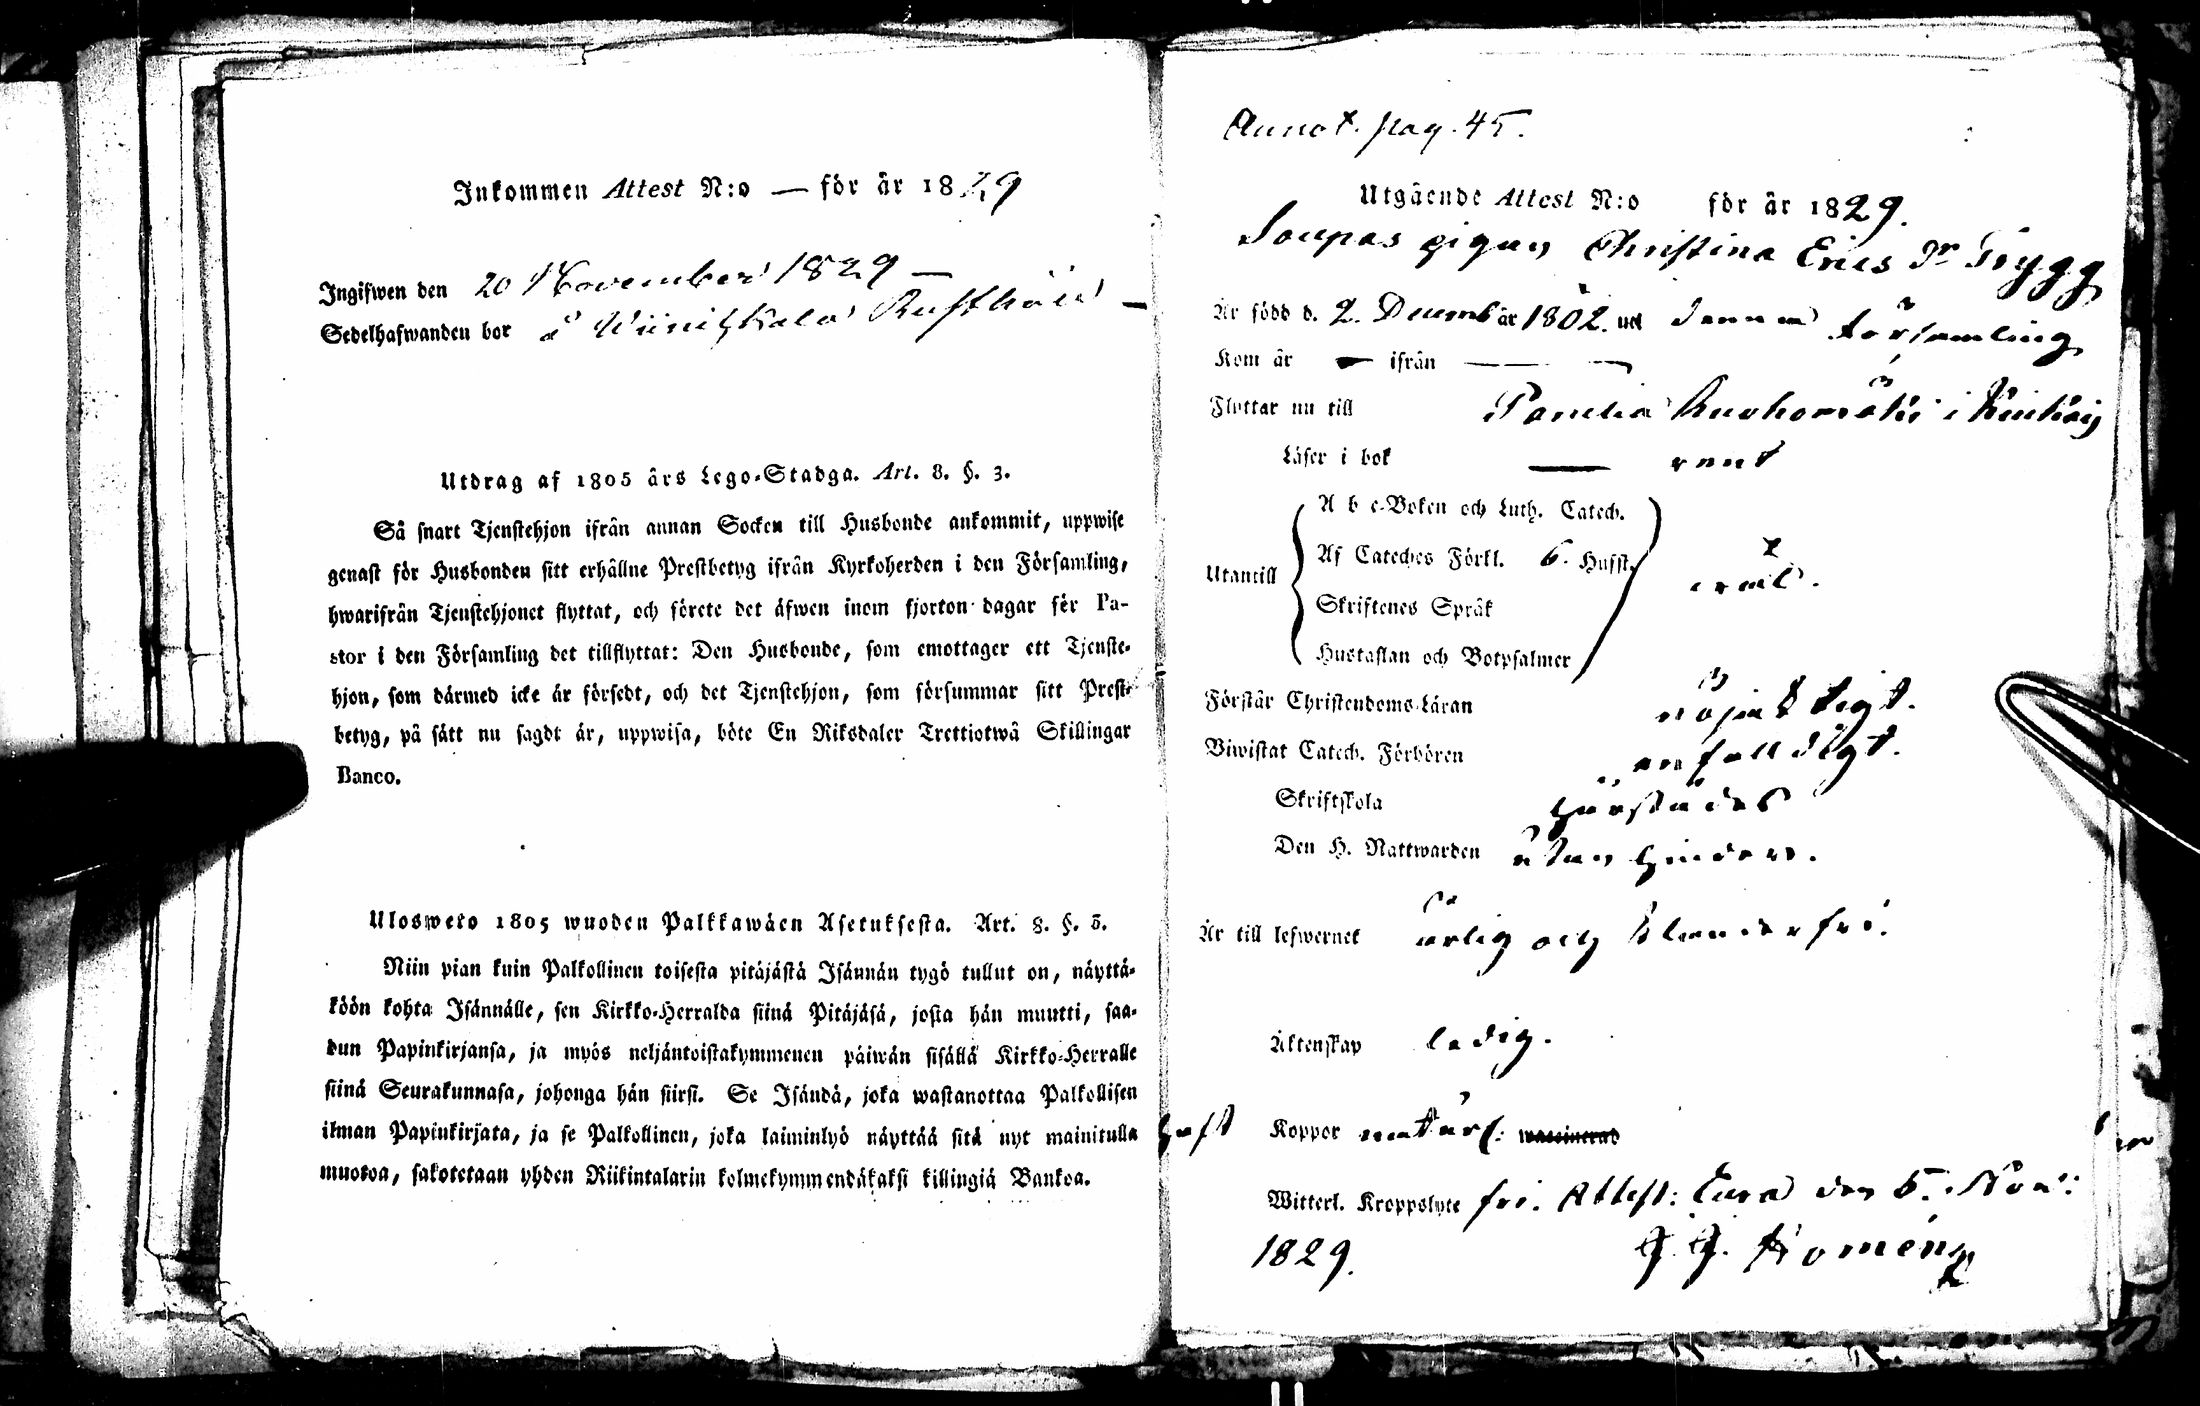 Inkommen Attest N:o — för år 1829
Ingifwen den 20 November 1829 —
Sedelhafwanden bor å Rusthåll —
Utdrag af 1805 års Lego-Stadga. Art. 8. §. 3.
Så snart Tjenstehjon ifrån annan Socken till Husbonde ankommit, uppwise
genast för Husbonden sitt erhållne Prestbetyg ifrån Kyrkoherden i den Församling,
hwarifrån Tjenstehjonet flyttat, och förete det äfwen inom fjorton dagar för Pa-
stor i den Församling det tillflyttat: Den Husbonde, som emottager ett Tjenste-
hjon, som därmed icke är försedt, och det Tjenstehjon, som försummar sitt Prest-
betyg, på sätt nu sagdt är, uppwisa, böte En Riksdaler Trettiotwå Skillingar
Banco.
Ulosweto 1805 wuoden Palkkawäen Asetuksesta. Art. 8. §. 3.
Niin pian kuin Palkollinen toisesta pitäjästä Isännän tygö tullut on, näyttä-
köön kohta Isännälle, sen Kirkko-Herralda siinä Pitäjäsä, josta hän muutti, saa-
dun Papinkirjansa, ja myös neljäntoistakymmenen päiwän sisällä Kirkko-Herralle
siinä Seurakunnasa, johonga hän siirsi. Se Isändä, joka wastanottaa Palkollisen
ilman Papinkirjata, ja se Palkollinen, joka laiminlyö näyttää sitä nyt mainitulla
muotoa, sakotetaan yhden Riikintalarin kolmekymmendäkaksi killingiä Bankoa.
Annot. pag. 45.
Utgående Attest N:o för år 1829.
pigan Christina Erics Dr Trygg
Är född d. 2. Decemb år 1802. uti denna församling
Kom år — ifrån —
Flyttar nu till i
Läser i bok — rent
A b c-Boken och Luth. Catech.
Af Cateches Förkl. 6. Husst.
Utantill
Skriftenes Språk
Hustaflan och Botpsalmer
Förstår Christendoms-Läran nöjaktigt.
Biwistat Catech. Förhören
Skriftskola härstädes
Den H. Nattwarden utan hinder.
Är till lefwernet ärlig och klanderfri.
Äktenskap ledig.
haft Koppor naturl: waccinerad
Witterl. Kroppslyte fri. Attest: Eura den 5. Nov:
1829.